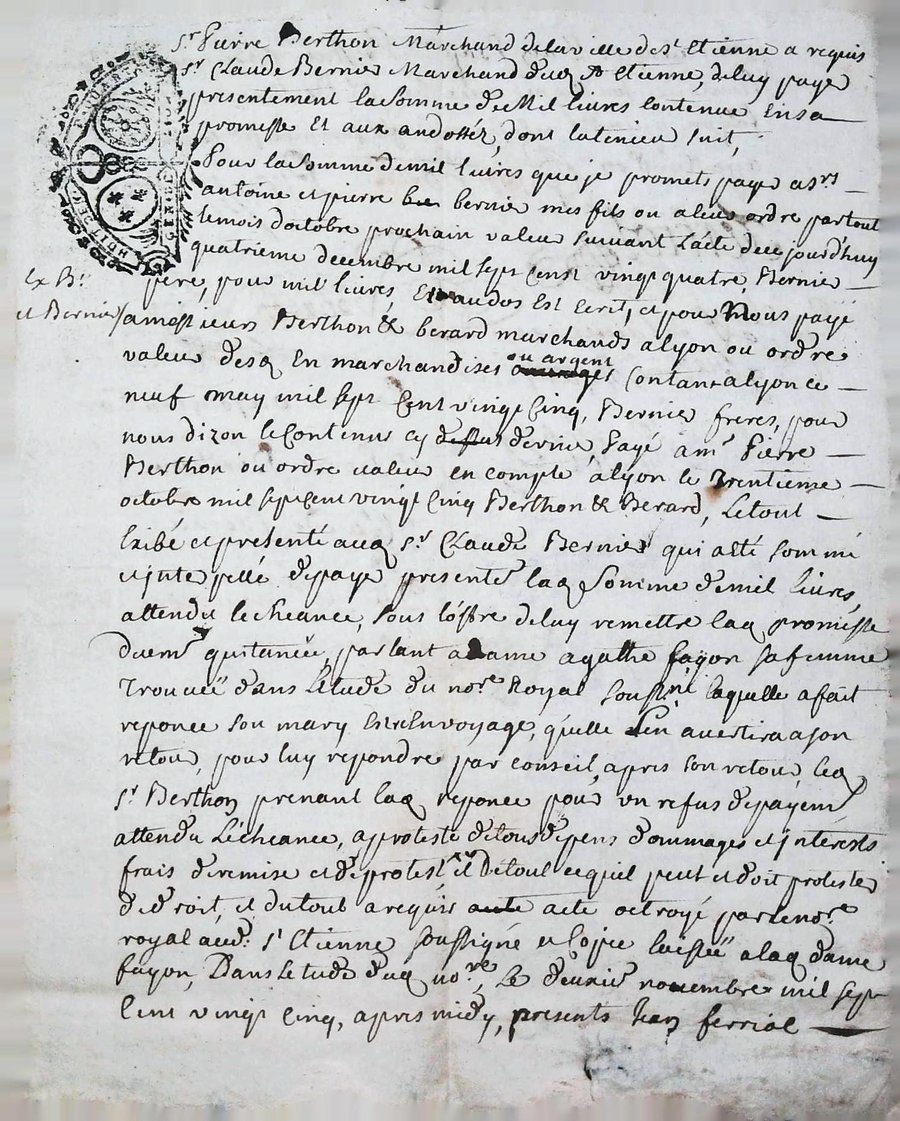 Sr Pierre Berthon Marchand delaville de St Etienne a requis
Sr Claude Bernier Marchand dudt St Etienne, deluy payer
presentement lasomme de Mil livres contenue Ensa
promesse Et aux andossez, dont lateneur suit,
Pour lasomme demil livres que je promets payer a srs
antoine et pierre bernier mes fils ou aleur ordre partout
lemois doctobre prochain valeur suivant lacte decejourdhuy
quatrieme decembre mil sept censt vingt quatre, Bernier
pere, pour mil livres, Et audos Est Ecrit, et pour Nous payé
et Bernier
amessieurs Berthon & berard marchands alyon ou ordre
valeur En marchandises ou argent Contant alyon ce
neuf may mil sept Cent vingt Cinq, Bernier freres, pour
nous dizon le Contenu cy dernier, Payé a mr Pierre
Berthon ou ordre valeur en compte alyon le Trentieme
octobre mil septcent vingt Cinq Berthon & Berard, Letout
Exibé et presenté audt Sr Claude Bernier qui a été sommé
et jnterpellé depayer presentemt ladt Somme demil livres,
attendu lecheance, sous loffre deluy remettre ladt promesse
duemt quitancée, parlant a dame agathe façon safemme
Trouvée dans letude du nore Royal soussné laquelle afait
reponce son mary Estre Envoyage, quelle Len avertira ason
retour, pour luy repondre par conseil, apres son retour, ledt
Sr Berthon prenant ladt reponce pour un refus depayemt
attendu Lécheance, aprotesté detousdepens dommages et jnterests
frais deremise et deprotest et Detout cequil peut et doit protester
dedroit, et dutout arequis acte octroyé parlenore
royal audt St Etienne soussigné et copie laissée aladt dame
façon, Dansletude dudt nore, Le novembre mil sept
Cent vingt Cinq, apres midy, presents Jean ferriol